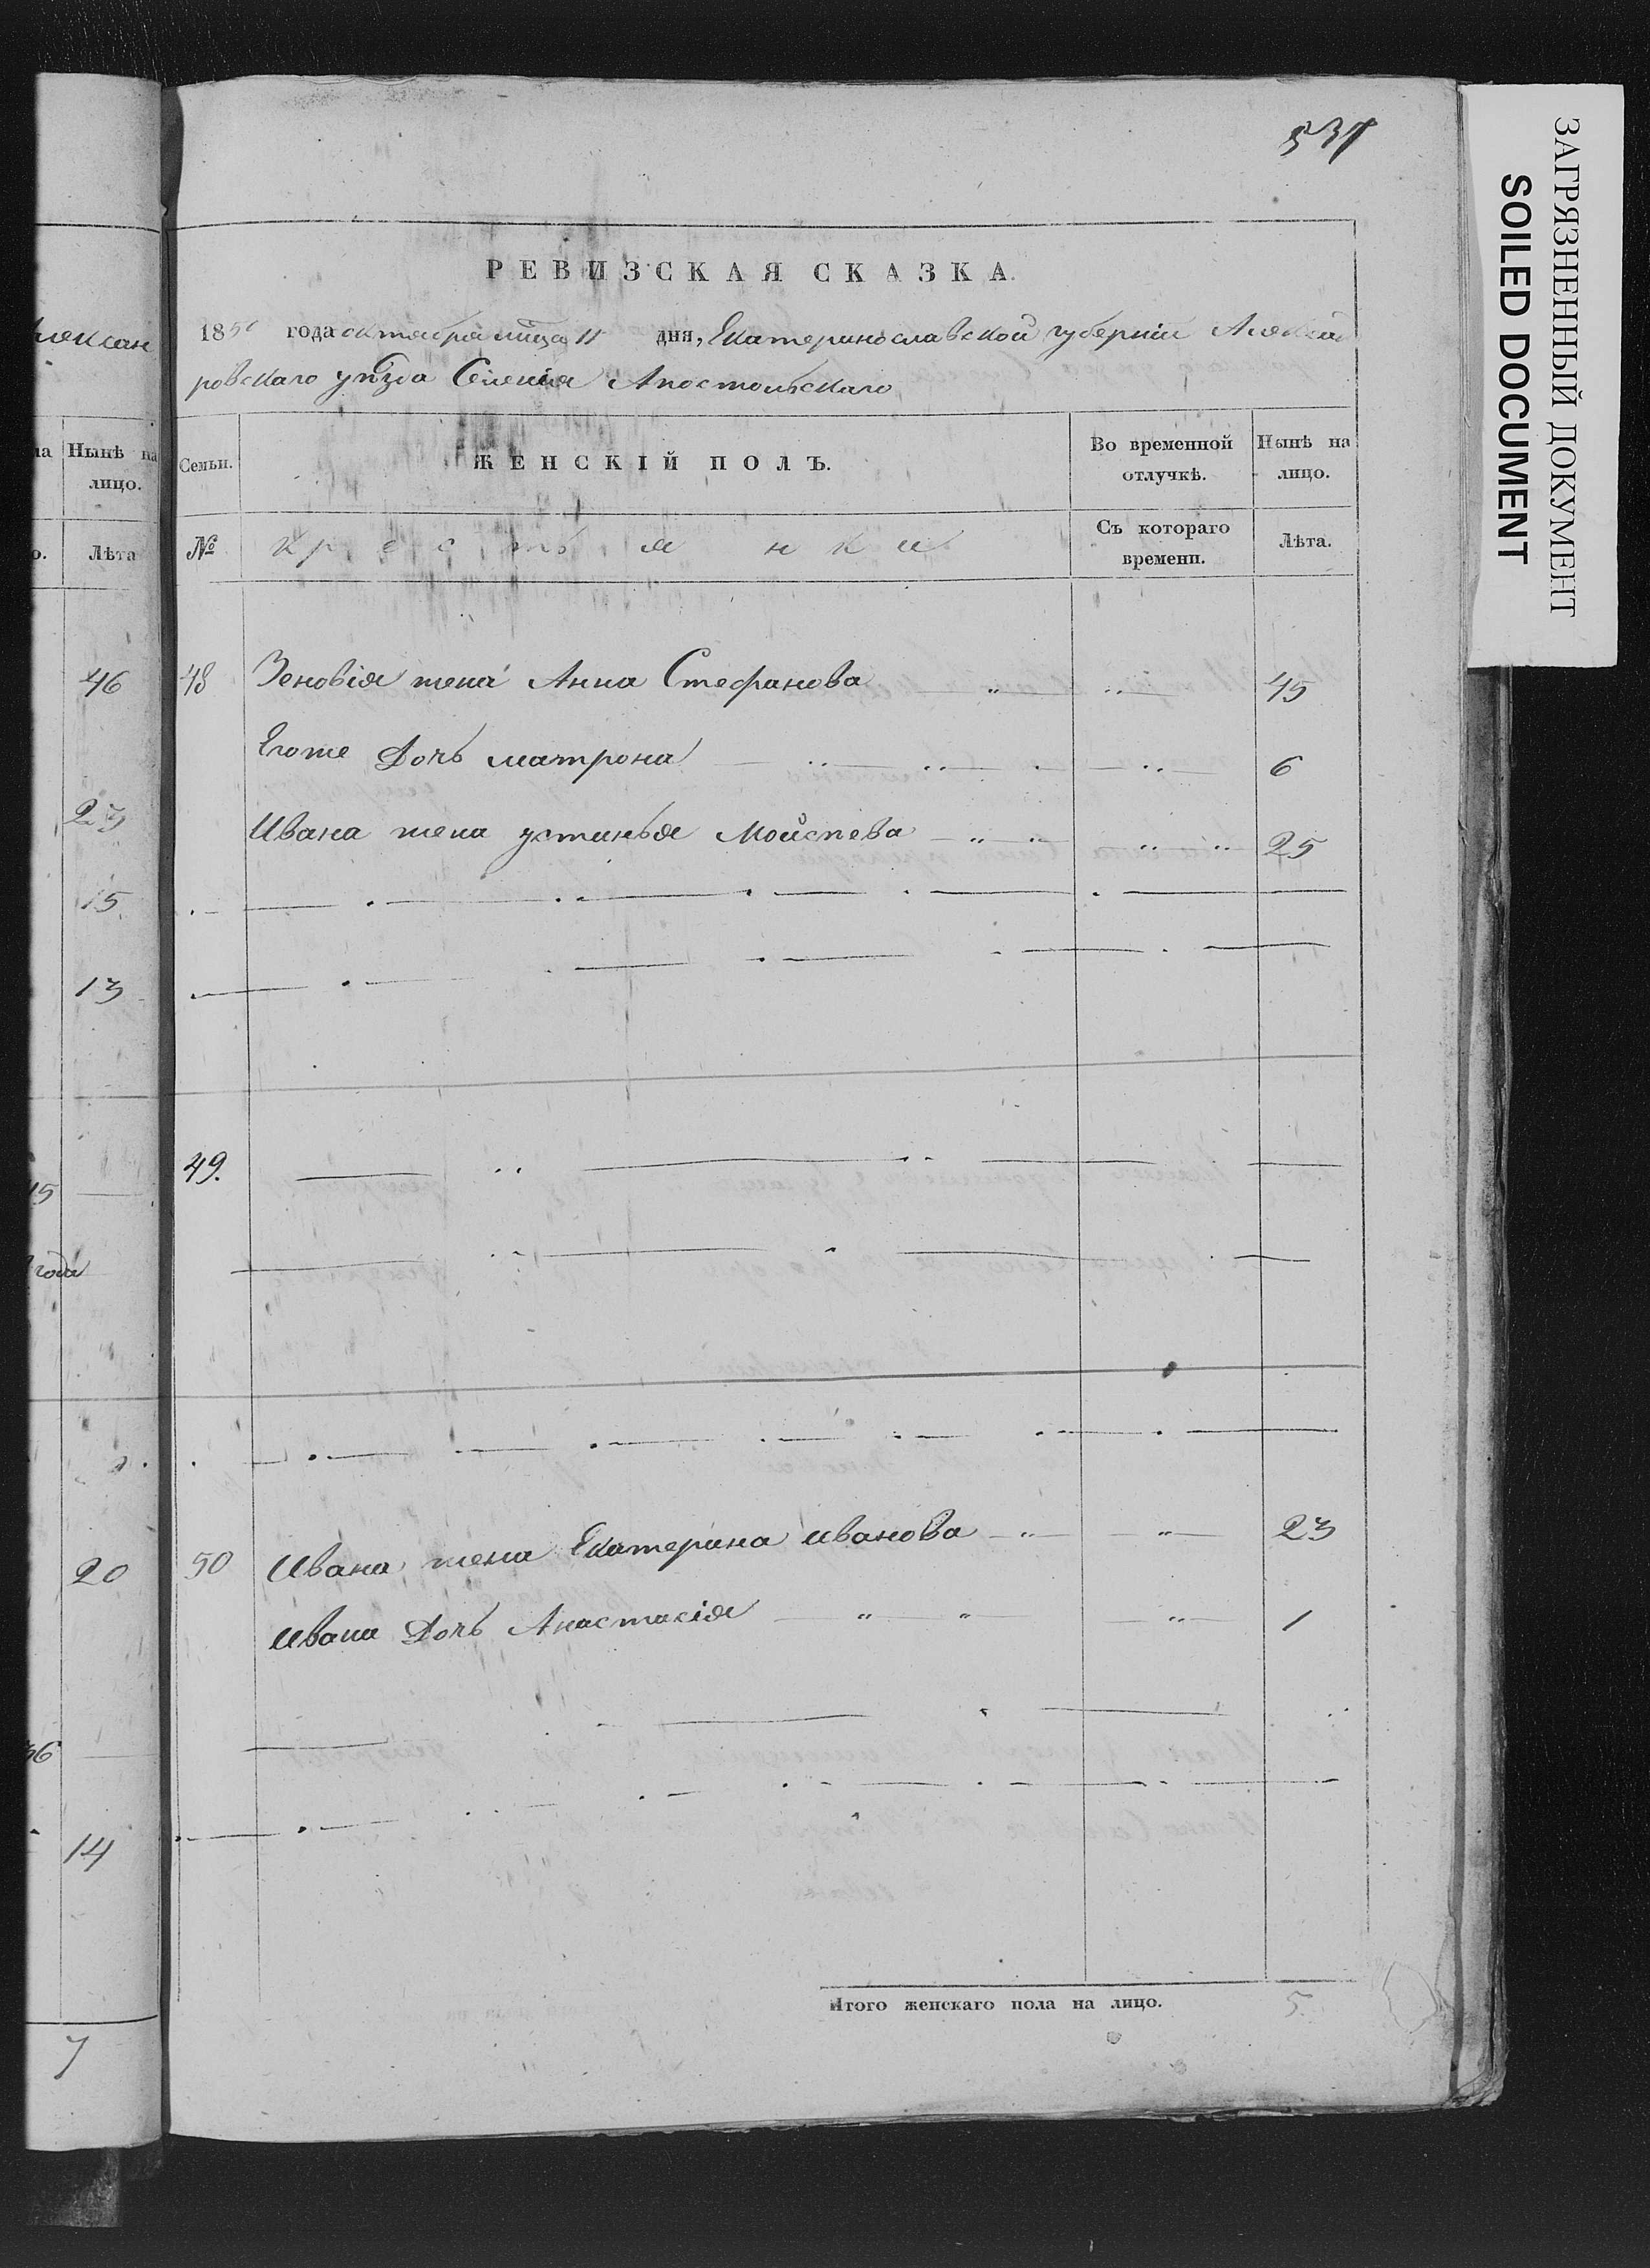 537
ЗАГРЯЗНЕННЫЙ ДОКУМЕНТ
SOILED DOCUMENT
РЕВИЗСКАЯ СКАЗКА.
1850 года октября мца 11 дня, Екатеринославской губерніи Алексан
ровскаго уѣзда Селенія Апостольскаго
алексан
на Нынѣ на лицо.
о. Лѣта
Семьи. ЖЕНСКІЙ ПОЛЪ. Во временной отлучкѣ. Нынѣ на лицо.
№ крестьянки Съ котораго времени. Лѣта.
46
48 Зеновія жена Анна Стефанова 45
Егоже Дочь матрона 6
23
Ивана жена устинья Мойсѣева 25
15
13
49.
15
года
20
50 Ивана жена Екатерина иванова 23
ивана Дочь Анастасія 1
36
14
Итого женскаго пола на лицо. 5.
7